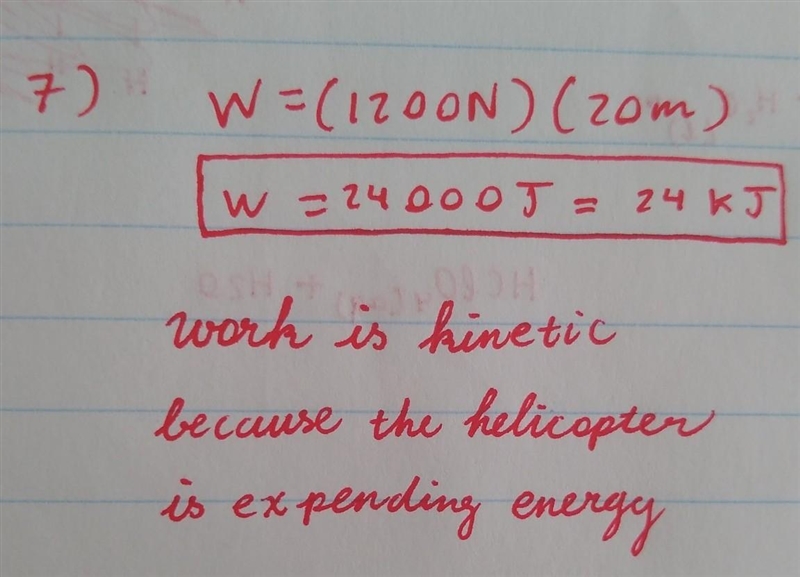 7) W = (1200N) (20m)
W = 24000J = 24 kJ
work is kinetic
because the helicopter
is expending energy